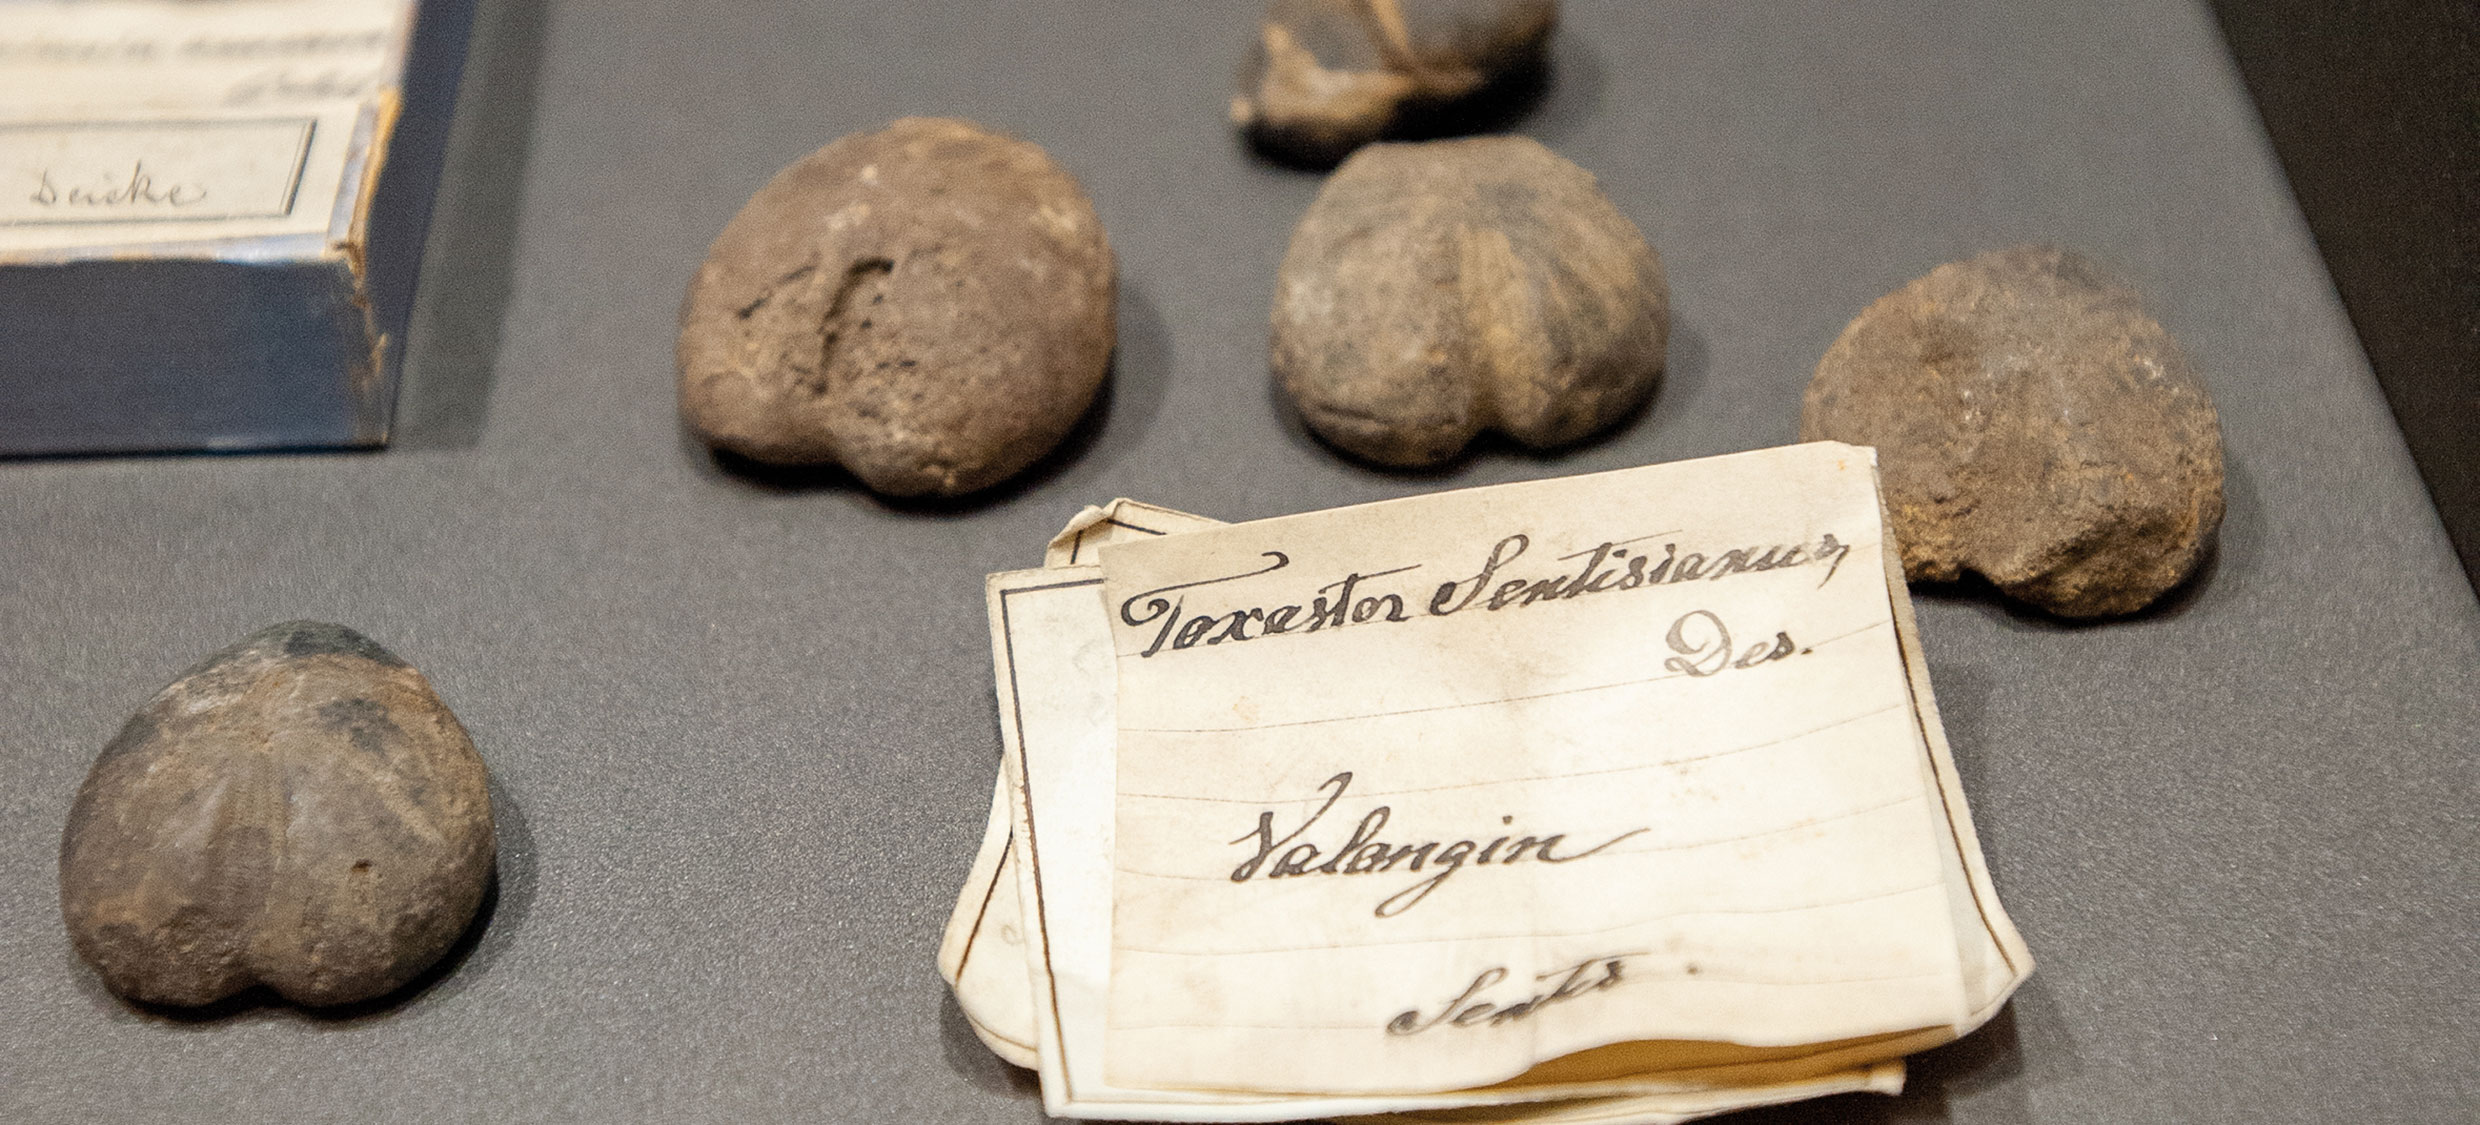 Deicke
Toxaster Sentisianus,
Des.
Valangin
Sentis.